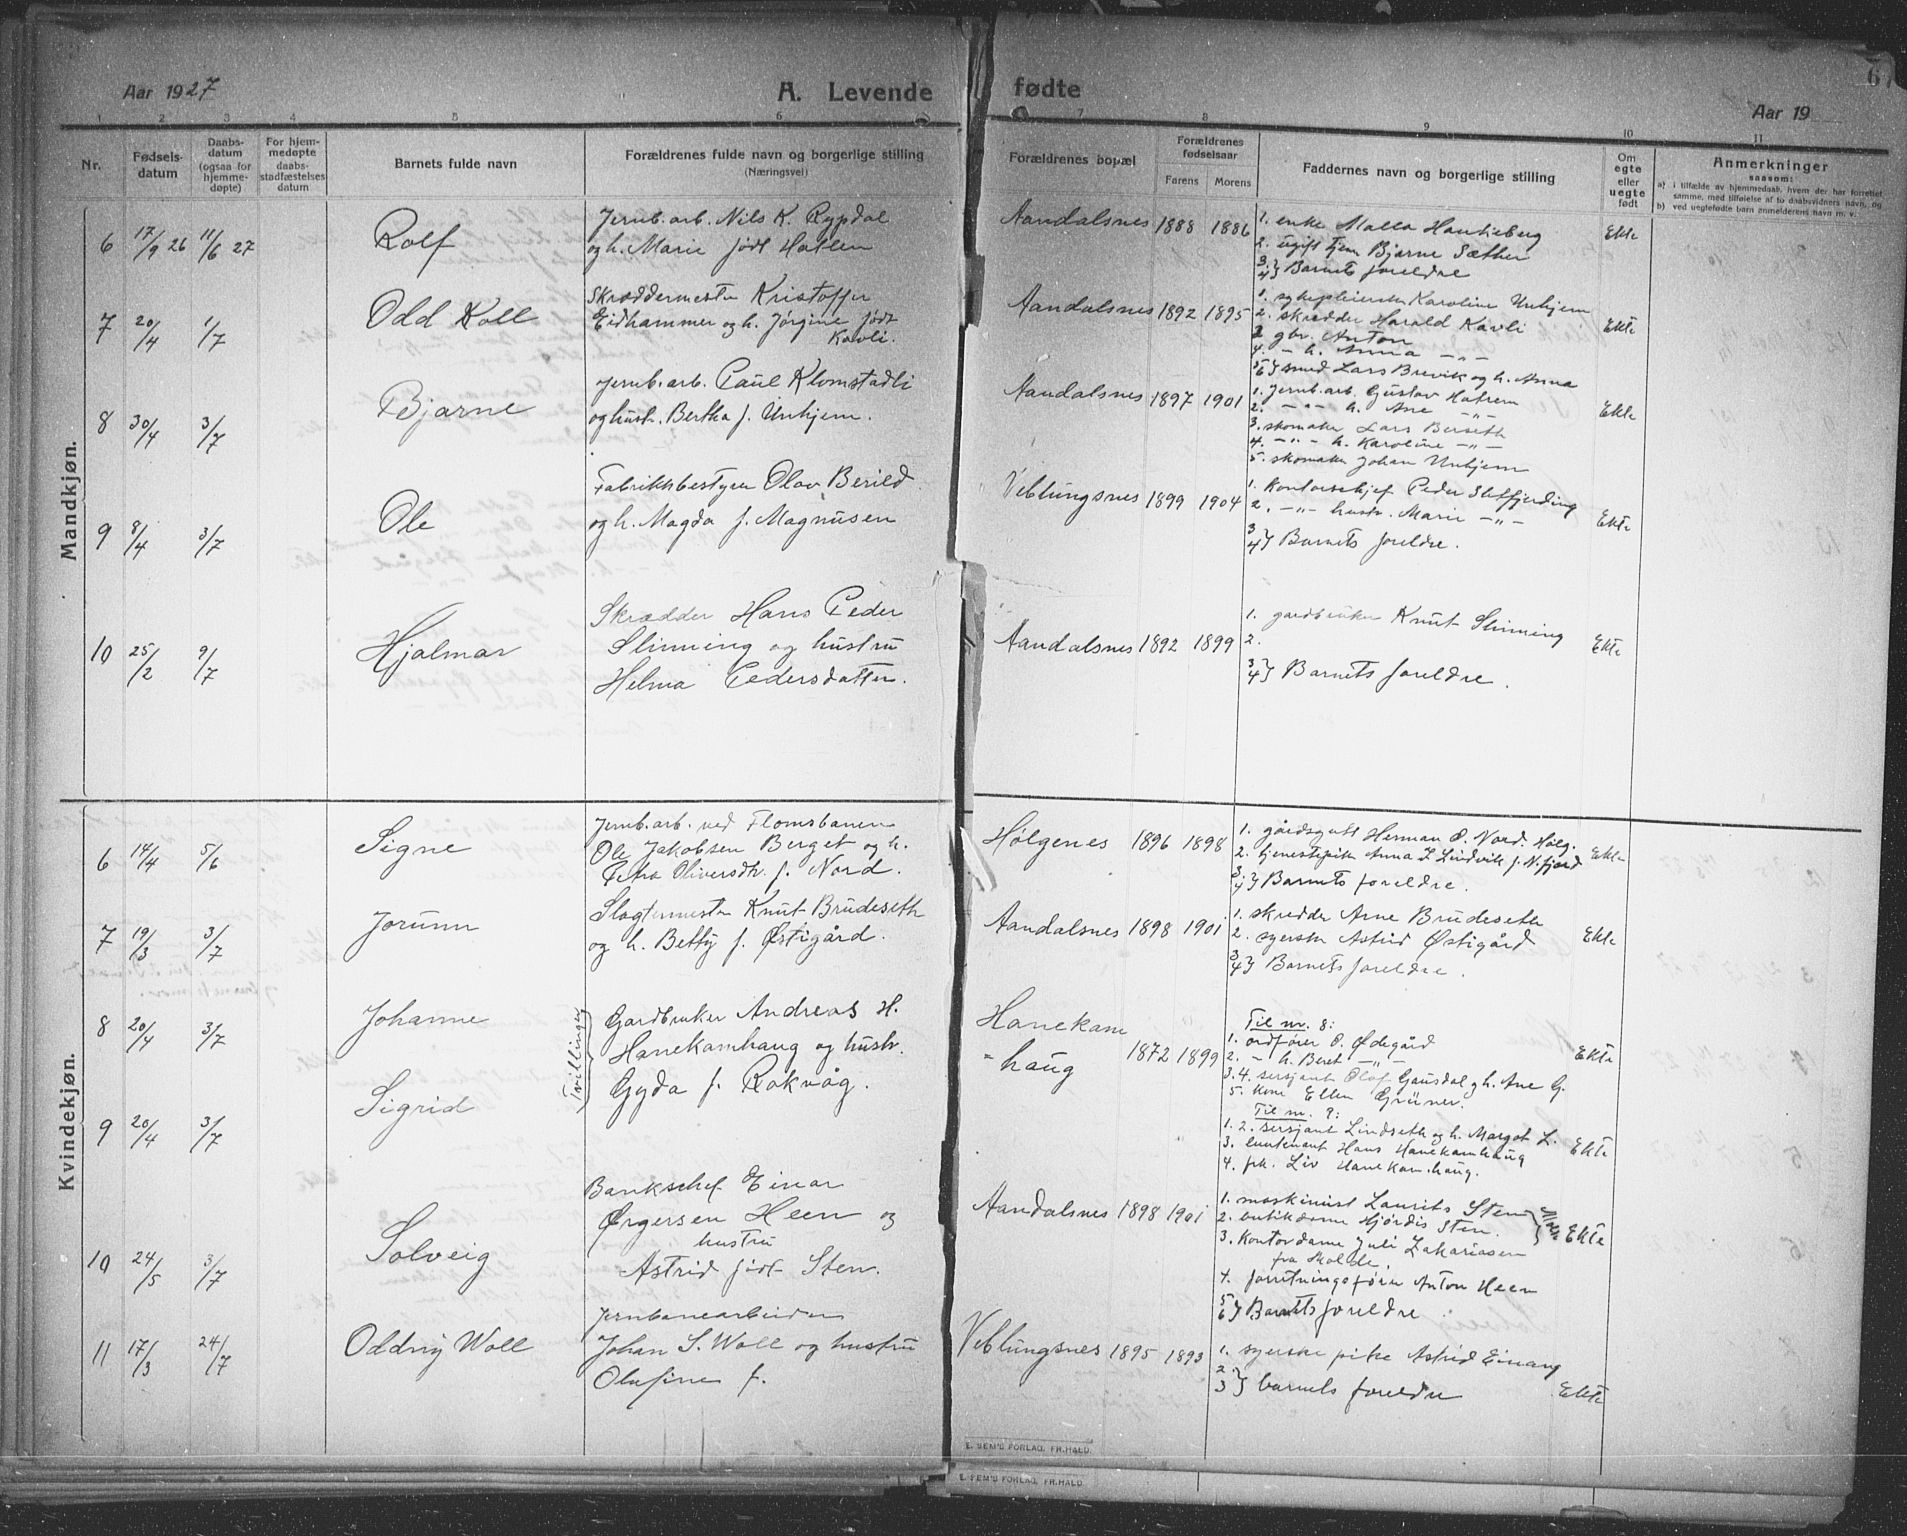 Aar 1927
A. Levende fødte
Aar 19
67
1 2 3 4 5 6 7 8 9 10 11
Nr.
Fødsels-
datum
Daabs-
datum
(ogsaa for
hjemme-
døpte)
For hjem-
medøpte
daabs-
stadfæstelses
datum
Barnets fulde navn
Forældrenes fulde navn og borgerlige stilling
(Næringsvei)
Forældrenes bopæl
Forældrenes
fødselsaar
Farens Morens
Faddernes navn og borgerlige stilling
Om
egte
eller
uegte
født
Anmerkninger
saasom:
a) i tilfælde av hjemmedaab, hvem der har forrettet
samme, med tilføielse af to daabsvidners navn, og
b) ved uegtefødte barn anmelderens navn m. v.
Mandkjøn.
6 17/9 26 11/6 27 Rolf
Jernb. arb. Nils K. Rypdal
og h. Marie født Hatlen
Aandalsnes 1888 1886
1. enke Malla Haukeberg
2. ugift tjen Bjarne Sæther
3. 4} Barnets foreldre
Ekte
7 20/4 1/7 Odd Koll
Skræddermester Kristoffer
Eidhammer og h. Jørgine født
Kavli.
Aandalsnes 1892 1895
1. sykepleierske Karoline Unhjem
2. skrædder Harald Kavli
3 gbr. Anton
4. - h. Anna - „ -
5 6} smed Lars Brevik og h. Anna
Ekte
8 30/4 3/7 Bjarne
Jernb. arb. Paul Klomstadli
og hustr. Bertha f. Unhjem.
Aandalsnes 1897 1901
1. Jernb. arb. Gustav Hatrem
2. - „ - h. Ane - „ -
3. skomaker Lars Berseth
4. - „ - h. Karoline - „ -
5. skomaker Johan Unhjem
Ekte
9 8/4 3/7 Ole
Fabrikkbestyrer Olav Berild
og h. Magda f. Magnusen
Veblungsnes 1899 1904
1. Kontorchef Peder
2. - „ - hustr. Marie - „ -
3 4} Barnets foreldre.
Ekte
10 25/2 9/7 Hjalmar
Skrædder Hans Peder
Slinning og hustru
Helma Pedersdatter.
Aandalsnes 1892 1899
1. gardbruker Knut Slinning
2.
3 4} Barnets foreldre.
Ekte
Kvindekjøn.
6 14/4 5/6 Signe
Jernb. arb. ved Flomsbanen
Ole Jakobsen Berget og h.
Petra Oliversdtr. f. Nord.
Hølgenes 1896 1898
1. gårdsgutt Herman O. Nord. Hølg.
2. tjenestepike Anna I. Lindvik f. N.fjord
3. 4} Barnets foreldre.
Ekte
7 19/3 3/7 Jorunn
Slagtermester Knut Brudeseth
og h. Betty f. Østigård.
Aandalsnes 1898 1901
1. skredder Arne Brudeseth
2. syerske Astrid Østigård
3 4} Barnets foreldre.
Ekte
8 20/4 3/7 Johanne
9 20/4 3/7 Sigrid
Tvillinger
Gardbruker Andreas H.
Hanekamhaug og hustr.
Gyda f. Rokvåg.
Hanekam
-haug
1872 1899
Til nr. 8:
1. ordfører O. Ødegård
2. - h. Beret - „ -
3. 4. sersjant Olaf Gausdal og h. Ane G.
5. Kone Ellen Grüner.
Ekte
Til nr. 9:
1. 2. sersjant Lindseth og h. Margot L.
3. leutenant Hans Hanekamhaug
4. frk. Liv Hanekamhaug.
Ekte
10 24/5 3/7 Solveig
Bankschef Einar
Ørgersen Heen og
hustru
Astrid født Sten.
Aandalsnes 1898 1901
1. maskinist Laurits Sten
2. butikdame Hjørdis Sten.
3. Kontordame Juli Zakariassen
fra Molde.
4. forretningsfører Anton Heen
5 6} Barnets foreldre.
Ekte
11 17/3 24/7 Oddny Woll
Jernbanearbeider
Johan S. Woll og hustru
Olufine f.
Veblungsnes 1895 1893
1. syerske pike Astrid Einang
2. 3} barnets foreldre
Ekte
E. SEM'S FORLAG, FR.HALD.
E. SEM'S FORLAG, FR.HALD